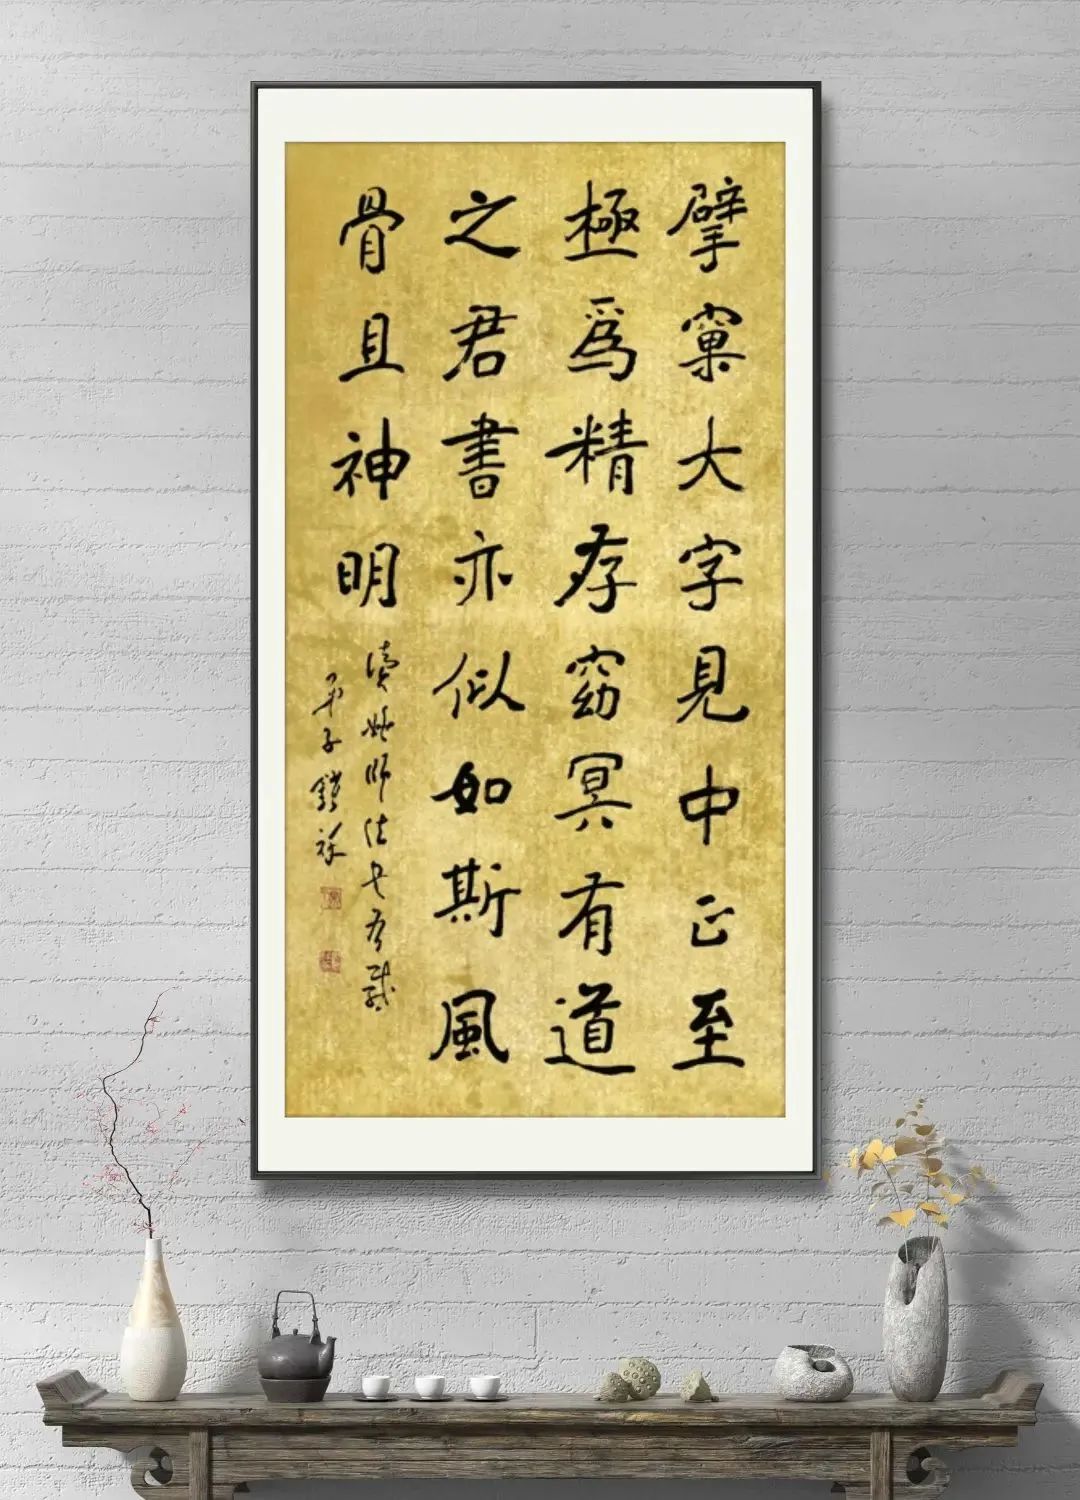 擘窠大字見中正至
極爲精存窈冥有道
之君書亦似如斯風
骨且神明
讀姚師法書有感
弟子鎖祿